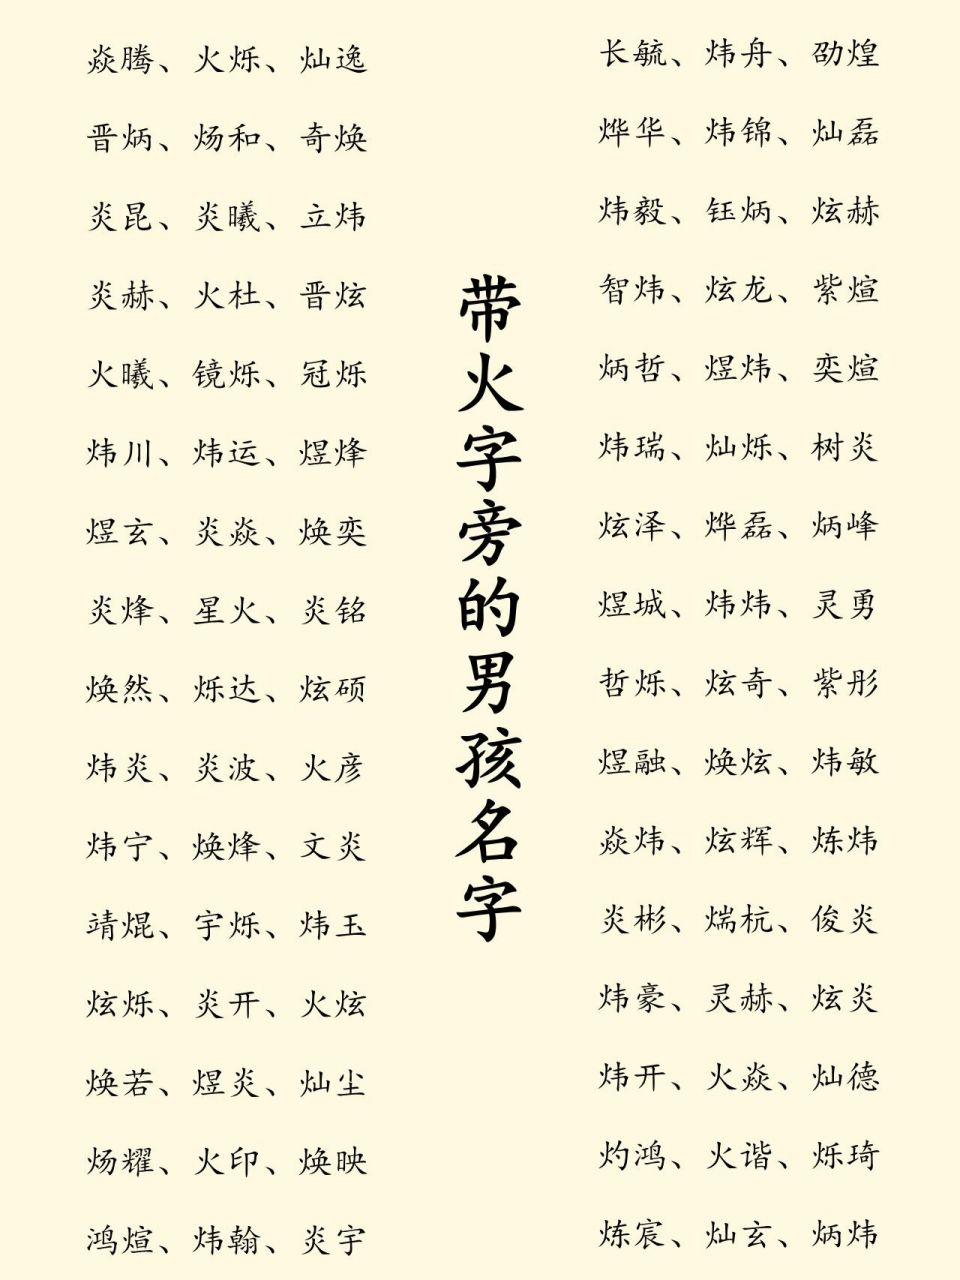 焱腾、火烁、灿逸
晋炳、炀和、奇焕
炎昆、炎曦、立炜
炎赫、火杜、晋炫
火曦、镜烁、冠烁
炜川、炜运、煜烽
煜玄、炎焱、焕奕
炎烽、星火、炎铭
焕然、烁达、炫硕
炜炎、炎波、火彦
炜宁、焕烽、文炎
靖焜、宇烁、炜玉
炫烁、炎开、火炫
焕若、煜炎、灿尘
炀耀、火印、焕映
鸿煊、炜翰、炎宇
带火字旁的男孩名字
长毓、炜舟、劭煌
烨华、炜锦、灿磊
炜毅、钰炳、炫赫
智炜、炫龙、紫煊
炳哲、煜炜、奕煊
炜瑞、灿烁、树炎
炫泽、烨磊、炳峰
煜城、炜炜、灵勇
哲烁、炫奇、紫彤
煜融、焕炫、炜敏
焱炜、炫辉、炼炜
炎彬、煓杭、俊炎
炜豪、灵赫、炫炎
炜开、火焱、灿德
灼鸿、火谐、烁琦
炼宸、灿玄、炳炜